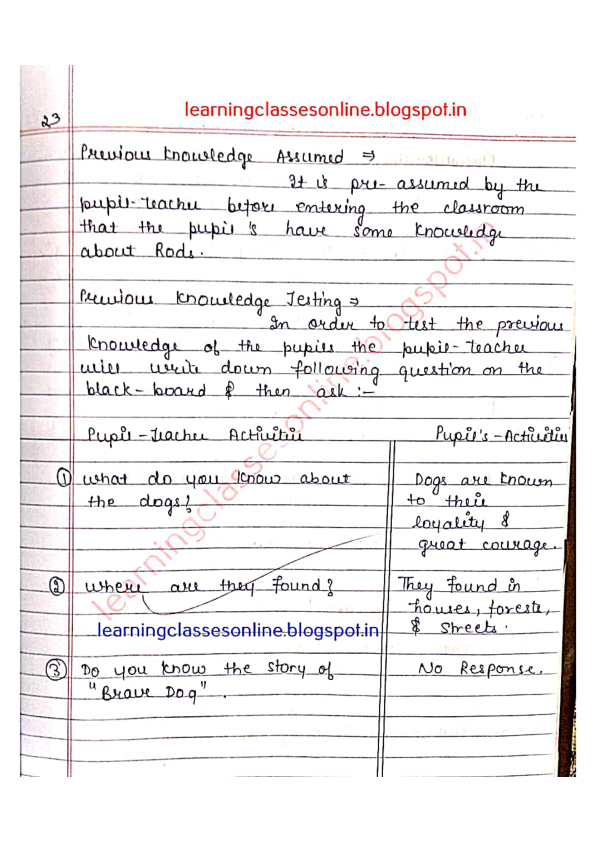 learningclassesonline.blogspot.in
23
Previous Knowledge Assumed ⇒
It is pre-assumed by the
pupil-teacher before entering the classroom
that the pupil's have some knowledge
about Rods.
Previous Knowledge Testing ⇒
In order to test the previous
knowledge of the pupils the pupil-teacher
will write down following question on the
black-board & then ask :-
Pupil-Teacher Activities
Pupil's-Activities
① what do you know about
the dogs?
Dogs are known
to their
loyality &
great courage.
② where are they found?
They found in
houses, forests,
& streets.
learningclassesonline.blogspot.in
③ Do you know the story of
"Brave Dog".
No Response.
learningclassesonline.blogspot.in